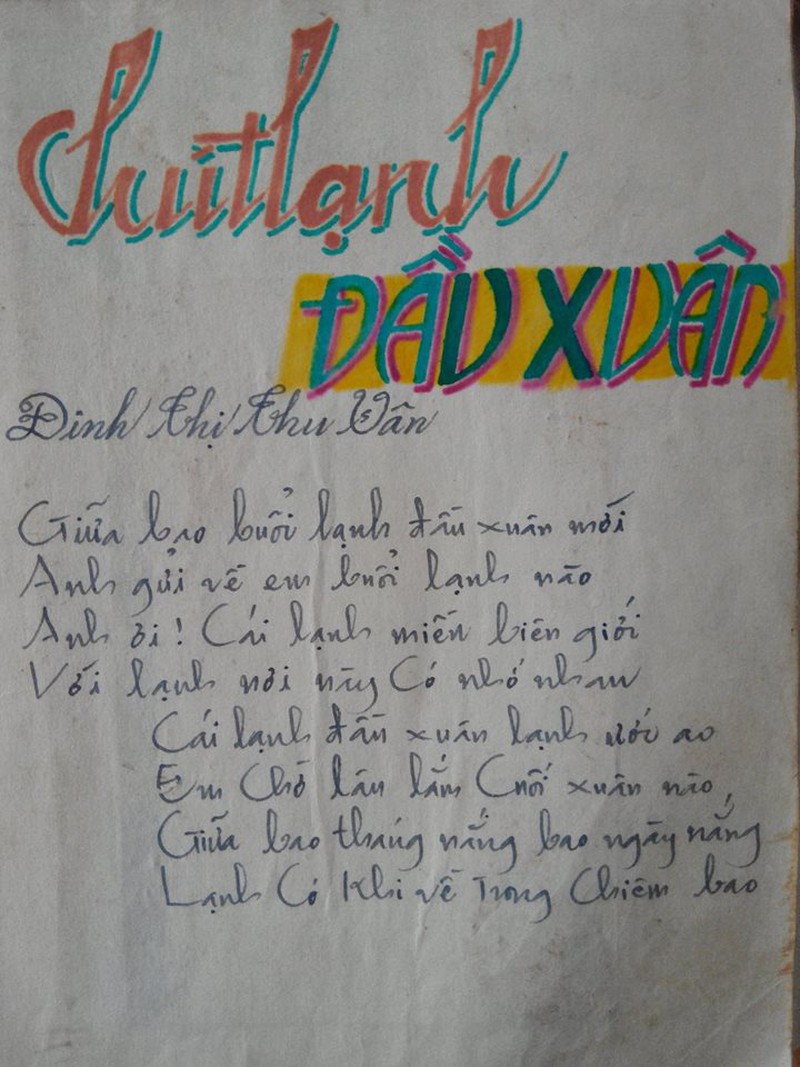 Chút lạnh
ĐẦU XUÂN
Đinh Thị Thu Vân
Giữa bao buổi lạnh đầu xuân mới
Anh gửi về em buổi lạnh nào
Anh ơi! Cái lạnh miền biên giới
Với lạnh nơi này Có nhớ nhau
Cái lạnh đầu xuân lạnh ước ao
Em Chờ lâu lắm Cuối xuân nào,
Giữa bao tháng nắng bao ngày nắng
Lạnh Có Khi về Trong Chiêm bao